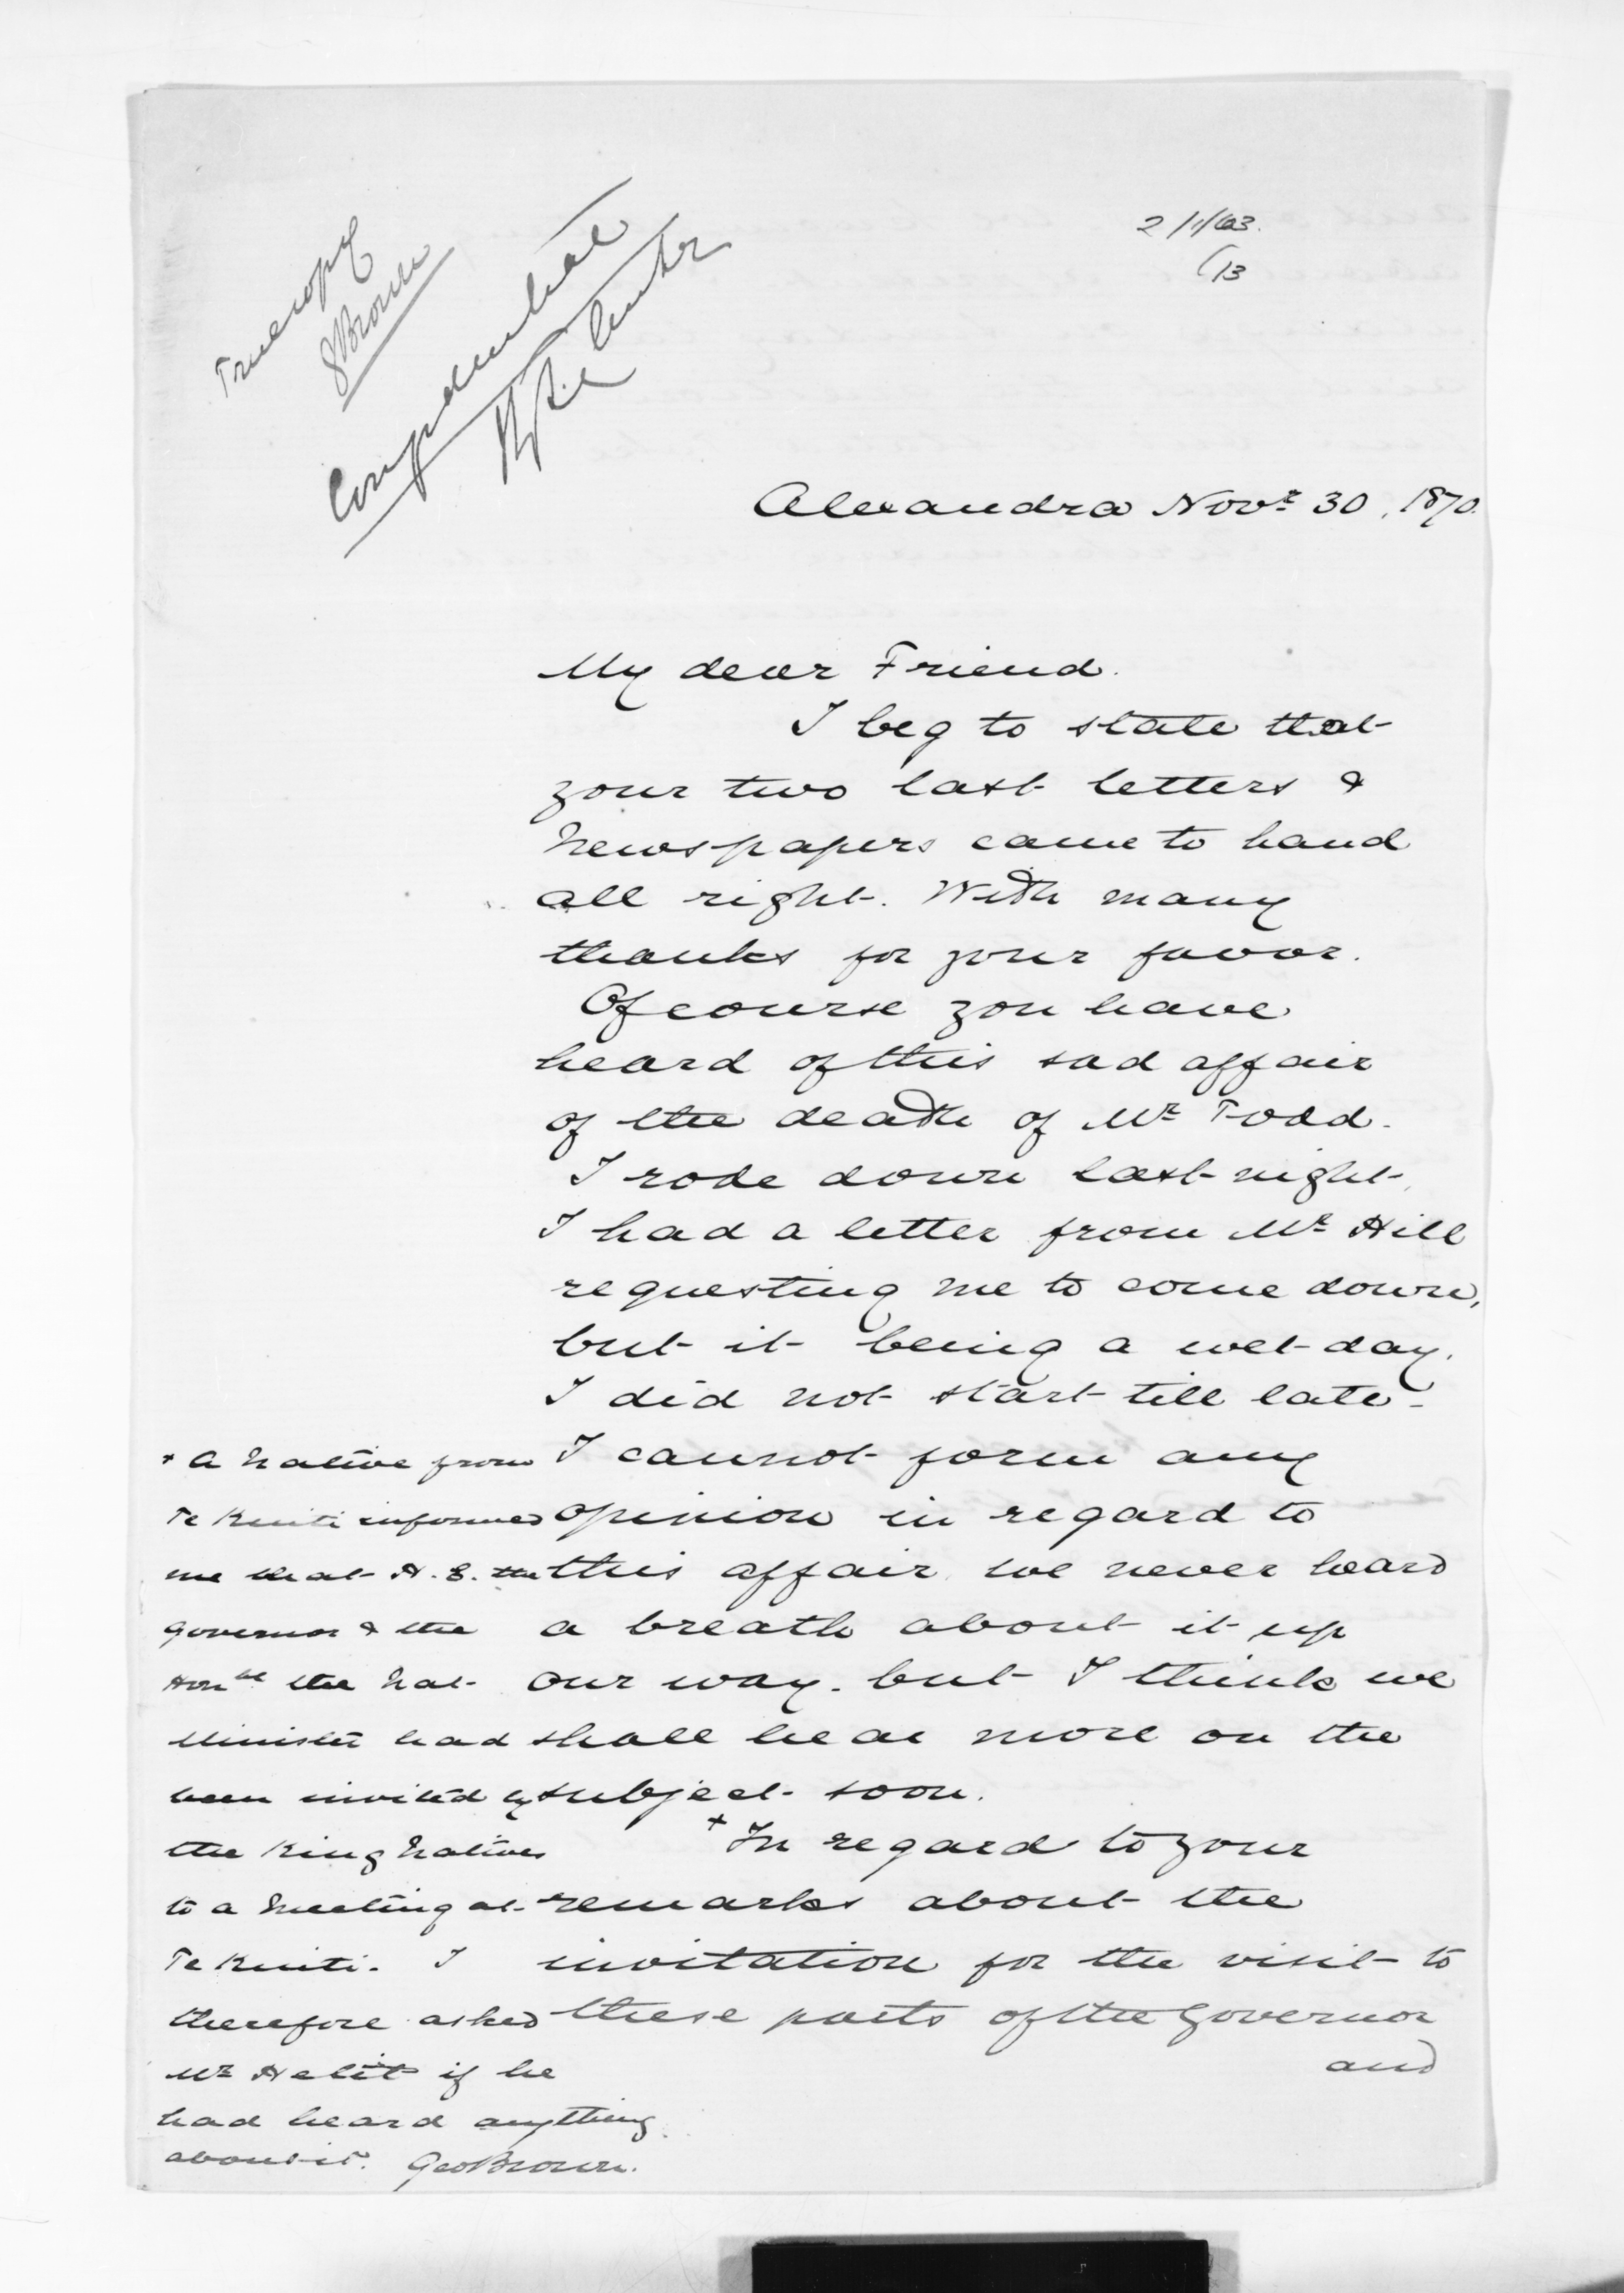 True copy
GBrown
Confidential
2/1/63.
(13
Alexandra Novr 30, 1870.
My dear Friend.
I beg to state that
your two last letters &
Newspapers came to hand
all right. With many
thanks for your favor.
Of course you have
heard of this sad affair
of the death of Mr Todd.
I rode down last night,
I had a letter from Mr Hill
requesting me to come down,
but it being a wet day.
I did not start till late.
I cannot form any
opinion in regard to
this affair, we never heard
a breath about it up
our way. but I think we
shall hear more on the
subject soon.
+ In regard to your
remarks about the
invitation for the visit to
these parts of the Governor
and
+ A Native from
Te Kuiti informed
me that H. E. the
Governor & the
Honble the Nat.
Minister had
been invited by
the King Natives
to a Meeting at
Te Kuiti. I
therefore asked
Mr if he
had heard anything
about it. GeoBrown.